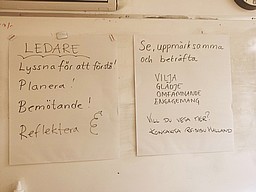 LEDARE
Lyssna för att förstå!
Planera!
Bemötande!
Reflektera
Se, uppmärksamma
och bekräfta
VILJA
GLÄDJE
OMFAMNANDE
ENGAGEMANG
VILL DU VETA MER?
KONTAKTA REGION HALLAND